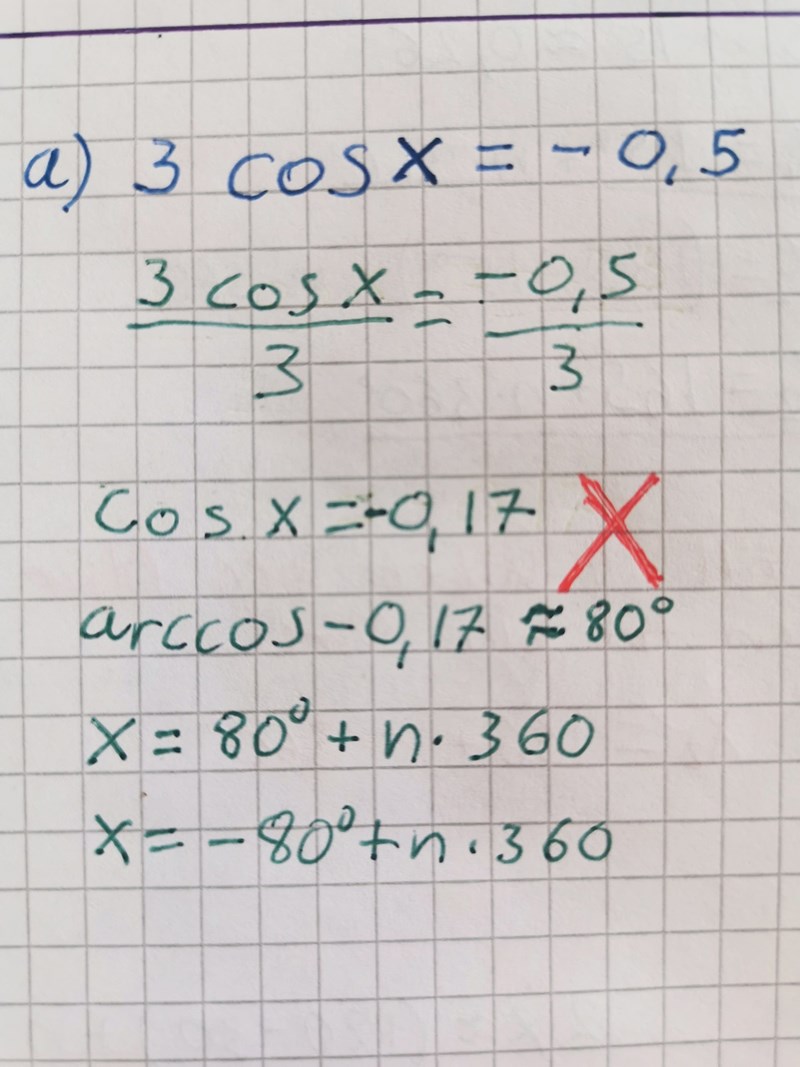 a) 3 cos x = - 0,5
3 cos x / 3 = -0,5 / 3
cos x = -0,17
arccos -0,17 ≈ 80°
x = 80° + n · 360
x = - 80° + n · 360